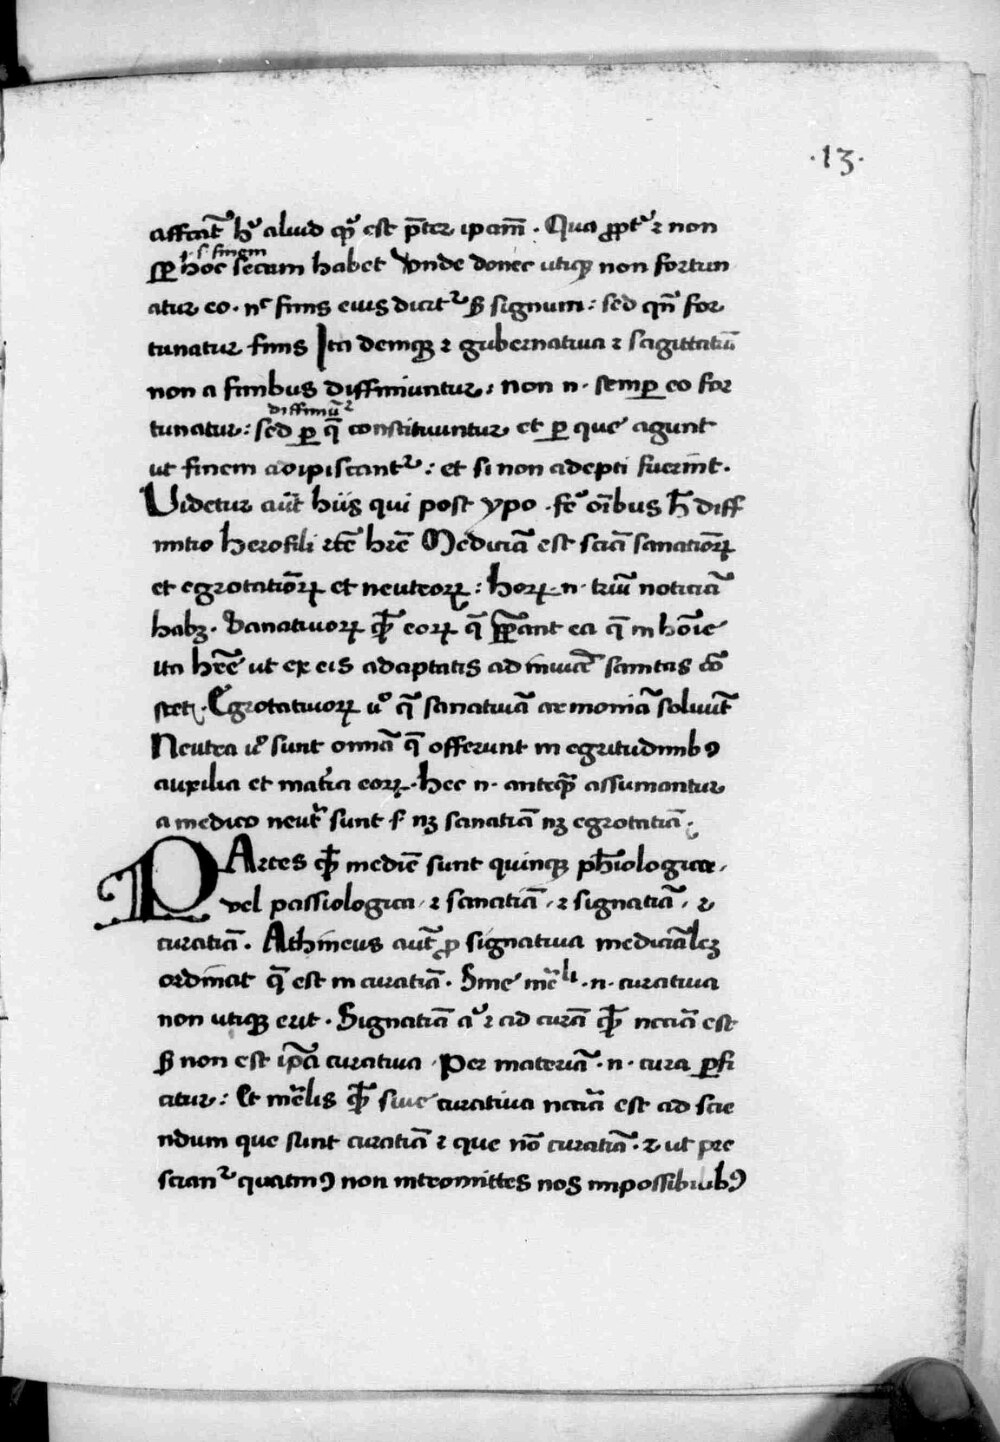 ·13·
affectat̄ hȝ aliud qȝ est p̄ter ipam̄. Qua ꝓpt̾ ⁊ non
s· finem
ꝑ hoc secum habet Vnde donec utiqȝ non fortun
atur eo. nͨ finis eius dicit᷑ ẜ signum: sed qn̄ for
tunatur finis Ita deniqȝ ⁊ gubernatiua ⁊ sagittatiū
non a finibus diffiniuntur: non n· semꝑ eo for
diffiniū᷑
tunatur: sed ꝑ q̄ constituuntur et ꝑ que agunt
ut finem adipiscant᷑: et si non adepti fuerint.
Videtur aut̄ hiis qui post ypo· fe᷑ oībus h̄ diff
initio herofili rc̄te hr̄e Mediciā est sciā sanatiōꝝ
et egrotatiōꝝ et neuteoꝝ: hoꝝ n· triū noticiā
habȝ. Sanatiuoꝝ qͥd eoꝝ q̄ ꝑant ea q̄ in hoīe
ita hr̄e ut ex eis adaptatis ad inuicē sanitas cō
stet. Egrotatiuoꝝ uͦ q̄ sanatiuā armoniā soluūt
Neutra uͦ sunt omīa q̄ offerunt in egritudinibꝰ
auxilia et mat̾ia eoꝝ. hec n· anteqȝ assumantur
a medico neut̾ sunt s· nȝ sanatiā nȝ egrotatiā.
PArtes qͥd medīe sunt quinqȝ ph̄iologica,
vel passiologica, ⁊ sanatiā, ⁊ signatiā, ⁊
curatiā. Athineus aut̄ ꝓ signatiua mediciāleȝ
ordinat q̄ est in curatiā. Sine mc̄li· n· curatiua
non utiqȝ erit. Signatiā aͧ ⁊ ad curā qͥd nccīa est
ẜ non est ip̄a curatiua. Per materiā· n· cura ꝑfi
citur: Et mc̄lis qͥd siue curatiua nccīa est ad scie
ndum que sunt curatiā ⁊ que nō curatiā. ⁊ ut pre
scian᷑ quatinꝰ non intromittes nos impossibilibꝰ